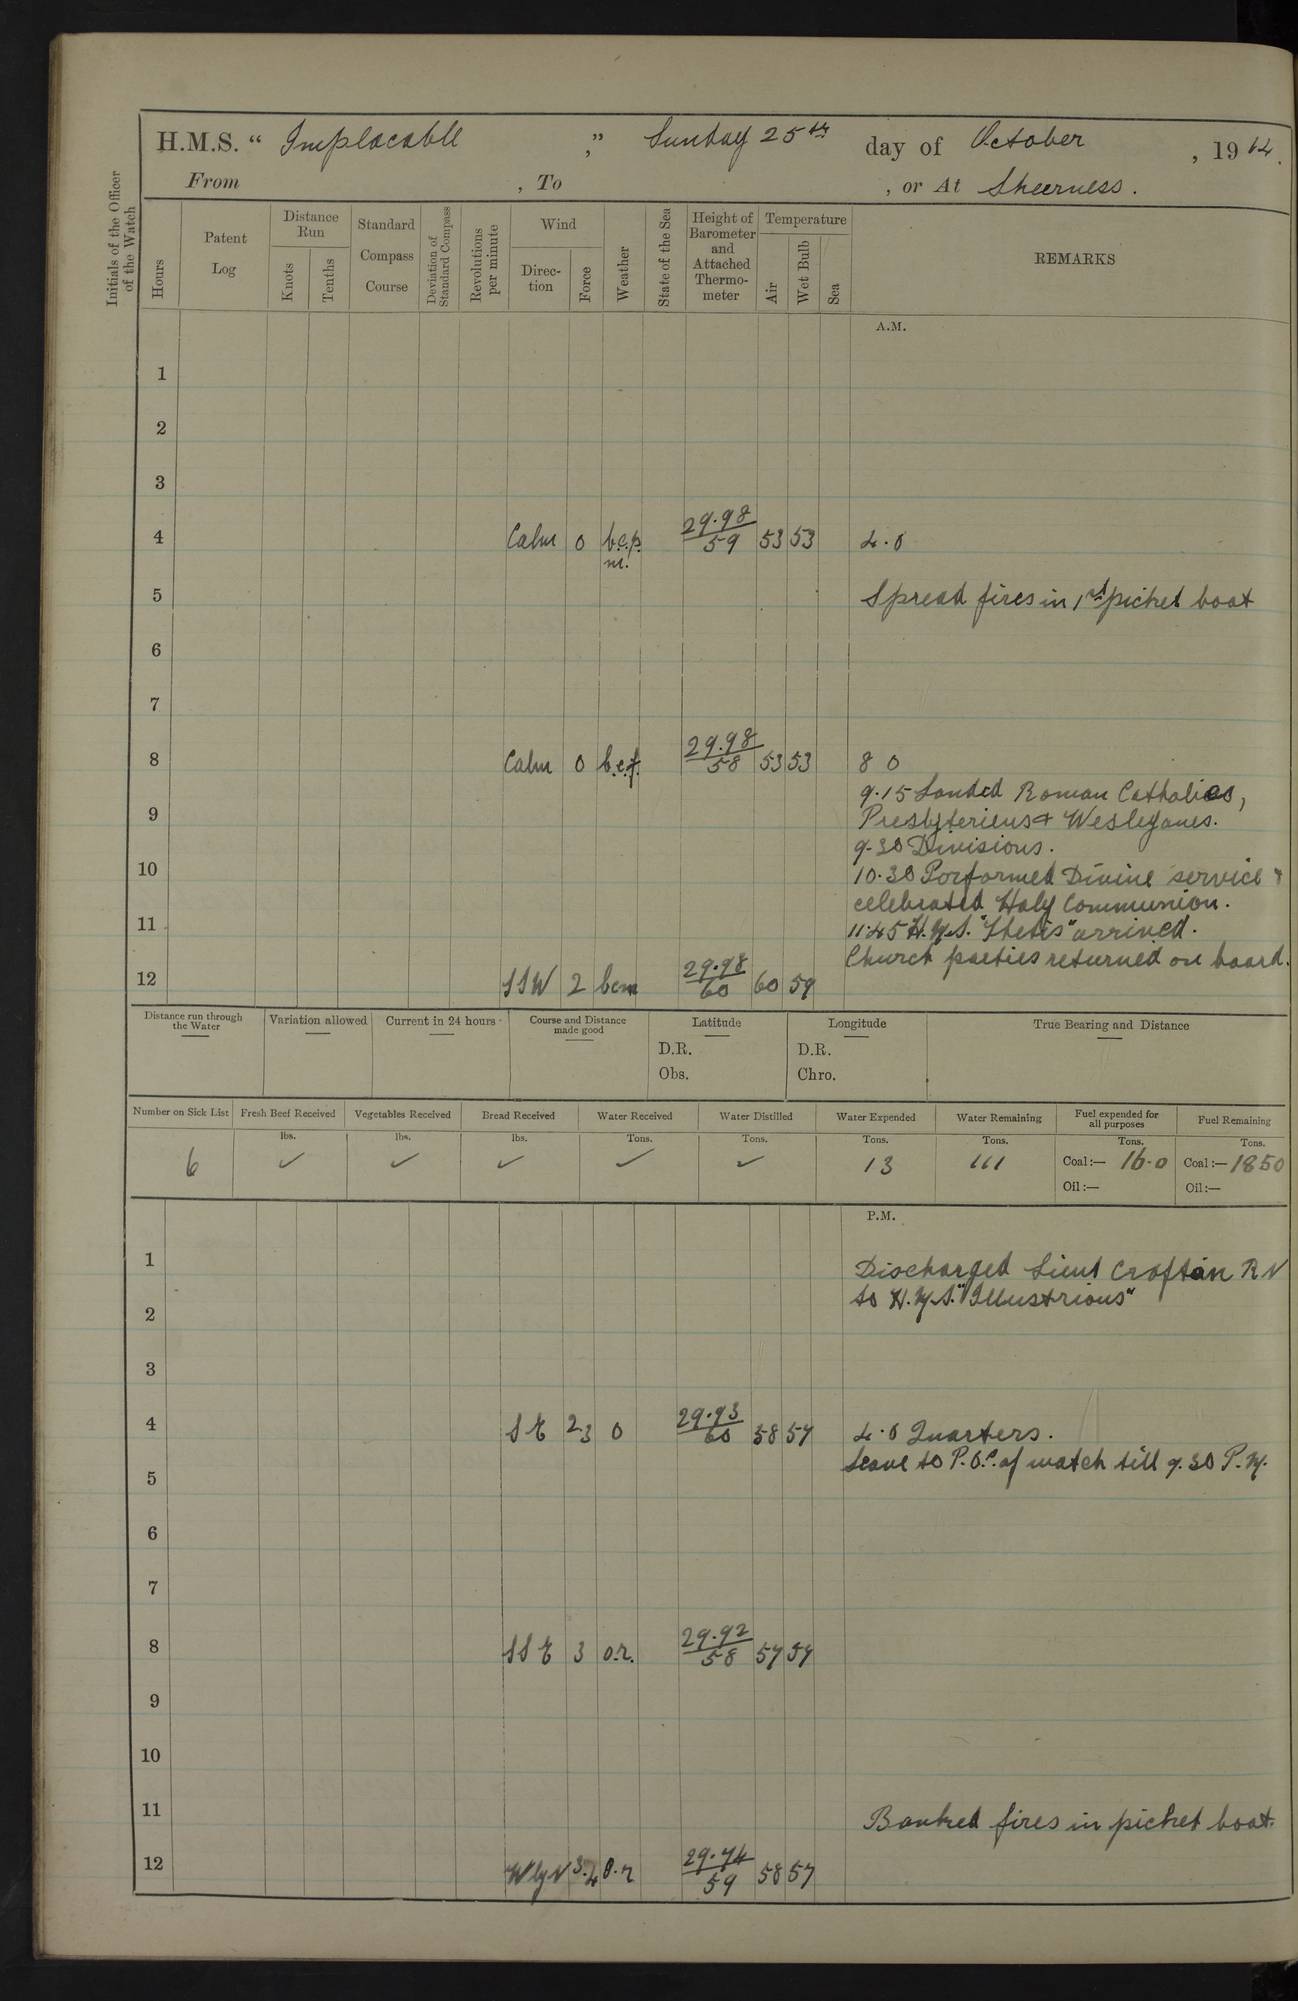 H.M.S. " Implacable ," Sunday 25th day of October , 1914.
From , To , or At Sheerness.
Initials of the Officer of the Watch
Hours
Patent Log
Distance Run
Knots
Tenths
Standard Compass Course
Deviation of Standard Compass
Revolutions per minute
Wind
Direc- tion
Force
Weather
State of the Sea
Height of Barometer and Attached Thermo- meter
Temperature
Air
Wet Bulb
Sea
REMARKS
A.M.
1
2
3
4 Calm 0 b.c.p. m. 29.98 59 53 53 4.0
5 Spread fires in 1st picket boat
6
7
8 Calm 0 b.c.f. 29.98 58 53 53 8 0
9.15 Landed Roman Catholics,
9 Presbyteriens & Wesleyans.
9.30 Divisions.
10 10.30 Performed Divine service &
celebrated Holy Communion.
11 11.45 H.M.S. "Thetis" arrived.
Church parties returned on board.
12 SSW 2 bcm 29.98 60 60 59
Distance run through the Water
Variation allowed
Current in 24 hours
Course and Distance made good
Latitude
D.R.
Obs.
Longitude
D.R.
Chro.
True Bearing and Distance
Number on Sick List Fresh Beef Received Vegetables Received Bread Received Water Received Water Distilled Water Expended Water Remaining Fuel expended for all purposes Fuel Remaining
lbs. lbs. lbs. Tons. Tons. Tons. Tons. Tons. Tons.
6 ✓ ✓ ✓ ✓ ✓ 13 111 Coal:— 16.0 Coal:— 1850
Oil:— Oil:—
P.M.
1 Discharged Lieut Crofton RN
2 to H.M.S. "Illustrious"
3
4 SE 2 3 0 29.93 60 58 57 4.0 Quarters.
Leave to P.O.s of watch till 9.30 P.M.
5
6
7
8 SSE 3 o.r. 29.92 58 57 57
9
10
11 Banked fires in picket boat.
12 WbyN 3.4 o.r 29.74 59 58 57